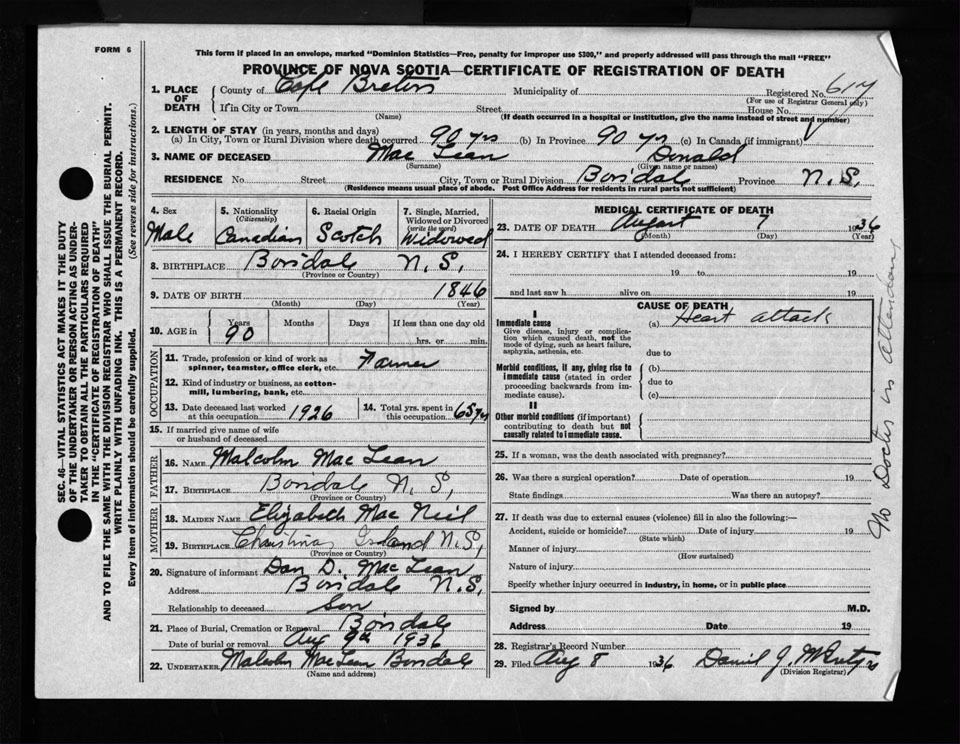 FORM 6
This form if placed in an envelope, marked "Dominion Statistics—Free, penalty for improper use $300," and properly addressed will pass through the mail "FREE"
PROVINCE OF NOVA SCOTIA—CERTIFICATE OF REGISTRATION OF DEATH
1. PLACE OF DEATH
County of Cape Breton Municipality of Registered No. 617
(For use of Registrar General only)
If in City or Town Street House No.
(Name) (If death occurred in a hospital or institution, give the name instead of street and number)
2. LENGTH OF STAY (in years, months and days)
(a) In City, Town or Rural Division where death occurred 90 yrs (b) In Province 90 yrs (c) In Canada (if immigrant)
3. NAME OF DECEASED Mac Lean Donald
(Surname) (Given name or names)
RESIDENCE No. Street City, Town or Rural Division Boisdale Province N.S.
(Residence means usual place of abode. Post Office Address for residents in rural parts not sufficient)
4. Sex
Male
5. Nationality
(Citizenship)
Canadian
6. Racial Origin
Scotch
7. Single, Married, Widowed or Divorced
(write the word)
Widowed
8. BIRTHPLACE Boisdale N.S.
(Province or Country)
9. DATE OF BIRTH 1846
(Month) (Day) (Year)
10. AGE in Years Months Days If less than one day old
90 hrs. or min.
OCCUPATION
11. Trade, profession or kind of work as
spinner, teamster, office clerk, etc. Farmer
12. Kind of industry or business, as cotton-
mill, lumbering, bank, etc.
13. Date deceased last worked
at this occupation 1926
14. Total yrs. spent in
this occupation 65 yrs
15. If married give name of wife
or husband of deceased
FATHER
16. NAME Malcolm Mac Lean
17. BIRTHPLACE Boisdale N.S.
(Province or Country)
MOTHER
18. MAIDEN NAME Elizabeth Mac Neil
19. BIRTHPLACE Christmas Island N.S.
(Province or Country)
20. Signature of informant Dan D. Mac Lean
Address Boisdale N.S.
Relationship to deceased Son
21. Place of Burial, Cremation or Removal Boisdale
Date of burial or removal Aug 9th 1936
22. UNDERTAKER Malcolm MacLean Boisdale
(Name and address)
MEDICAL CERTIFICATE OF DEATH
23. DATE OF DEATH August 7 1936
(Month) (Day) (Year)
24. I HEREBY CERTIFY that I attended deceased from:
19 to 19
and last saw h alive on 19
CAUSE OF DEATH
I
Immediate cause
Give disease, injury or complica-
tion which caused death, not the
mode of dying, such as heart failure,
asphyxia, asthenia, etc.
(a) Heart attack
due to
Morbid conditions, if any, giving rise to
immediate cause (stated in order
proceeding backwards from im-
mediate cause).
(b)
due to
(c)
II
Other morbid conditions (if important)
contributing to death but not
causally related to immediate cause.
25. If a woman, was the death associated with pregnancy?
26. Was there a surgical operation? Date of operation 19
State findings Was there an autopsy?
27. If death was due to external causes (violence) fill in also the following:—
Accident, suicide or homicide? Date of injury 19
(State which)
Manner of injury
(How sustained)
Nature of injury
Specify whether injury occurred in industry, in home, or in public place
Signed by M.D.
Address Date 19
28. Registrar's Record Number
29. Filed Aug 8 1936 Daniel J.
(Division Registrar)
No Doctor in attendance
SEC. 46—VITAL STATISTICS ACT MAKES IT THE DUTY
OF THE UNDERTAKER OR PERSON ACTING AS UNDER-
TAKER TO OBTAIN ALL THE PARTICULARS REQUIRED
IN THE "CERTIFICATE OF REGISTRATION OF DEATH"
AND TO FILE THE SAME WITH THE DIVISION REGISTRAR WHO SHALL ISSUE THE BURIAL PERMIT.
WRITE PLAINLY WITH UNFADING INK. THIS IS A PERMANENT RECORD.
Every item of information should be carefully supplied. (See reverse side for instructions.)